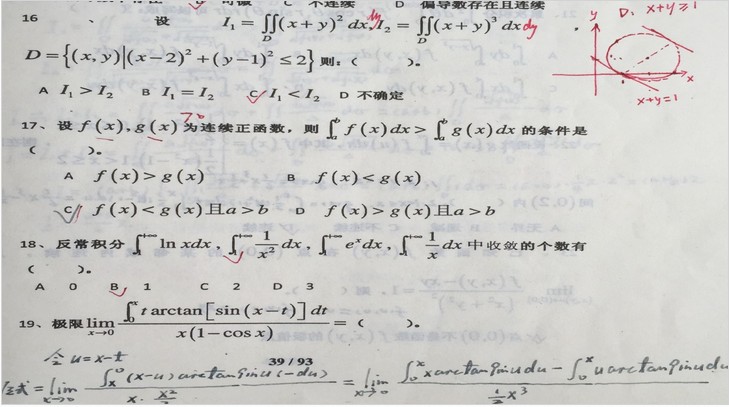 D 偏导数存在且连续
16 、 设 I₁ = ∬_D (x+y)² dx dy, I₂ = ∬_D (x+y)³ dx dy
D = {(x,y)|(x−2)² + (y−1)² ≤ 2} 则：( )。
A I₁ > I₂ B I₁ = I₂ C I₁ < I₂ D 不确定
y D: x+y≥1
x
x+y=1
>0
17、设 f(x), g(x) 为连续正函数，则 ∫_a^b f(x)dx > ∫_a^b g(x)dx 的条件是
( )。
A f(x) > g(x) B f(x) < g(x)
C f(x) < g(x) 且 a > b D f(x) > g(x) 且 a > b
18、反常积分 ∫_1^{+∞} ln xdx, ∫_1^{+∞} 1/x² dx, ∫_1^{+∞} eˣdx, ∫_1^{+∞} 1/x dx 中收敛的个数有
( )。
A 0 B 1 C 2 D 3
19、极限 lim_{x→0} ∫_0^x t arctan[sin(x−t)]dt / x(1−cos x) = ( )。
令 u=x-t
39 / 93
原式 = lim_{x→0} ∫_x^0 (x-u) arctan sin u (-du) / x·x²/2 = lim_{x→0} ∫_0^x x arctan sin u du - ∫_0^x u arctan sin u du / ½x³